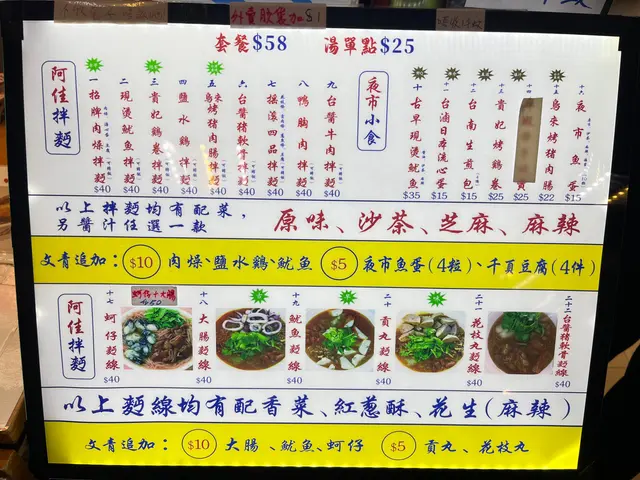 外賣膠盒加$1
套餐$58 湯單點$25
阿佳拌麵
一 招牌肉燥拌麵 $40
二 現燙魷魚拌麵 $40
三 貴妃雞卷拌麵 $40
四 鹽水雞拌麵 $40
五 烏朱烤豬肉腸拌麵 $40
六 台醬豬軟骨拌麵 $40
七 搖滾四品拌麵 $40
八 鴨胸肉拌麵 $40
九 台醬牛肉拌麵 $40
夜市小食
十 古早現燙魷魚 $35
十一 台滷日本流心蛋 $15
十二 台南生煎包 $15
十三 貴妃烤雞卷 $25
$25
十五 烏朱烤豬肉腸 $22
十六 夜市魚蛋 $15
以上拌麵均有配菜，
另醬汁任選一款
原味、沙茶、芝麻、麻辣
文青追加：$10 肉燥、鹽水雞、魷魚 $5 夜市魚蛋(4粒)、千頁豆腐(4件)
阿佳拌麵
十七 蚵仔麵線 $40
蚵仔+大腸
十八 大腸麵線 $40
十九 魷魚麵線 $40
二十 貢丸麵線 $40
二十一 花枝丸麵線 $40
二十二 台醬豬軟骨麵線 $40
以上麵線均有配香菜、紅蔥酥、花生(麻辣)
文青追加：$10 大腸、魷魚、蚵仔 $5 貢丸、花枝丸